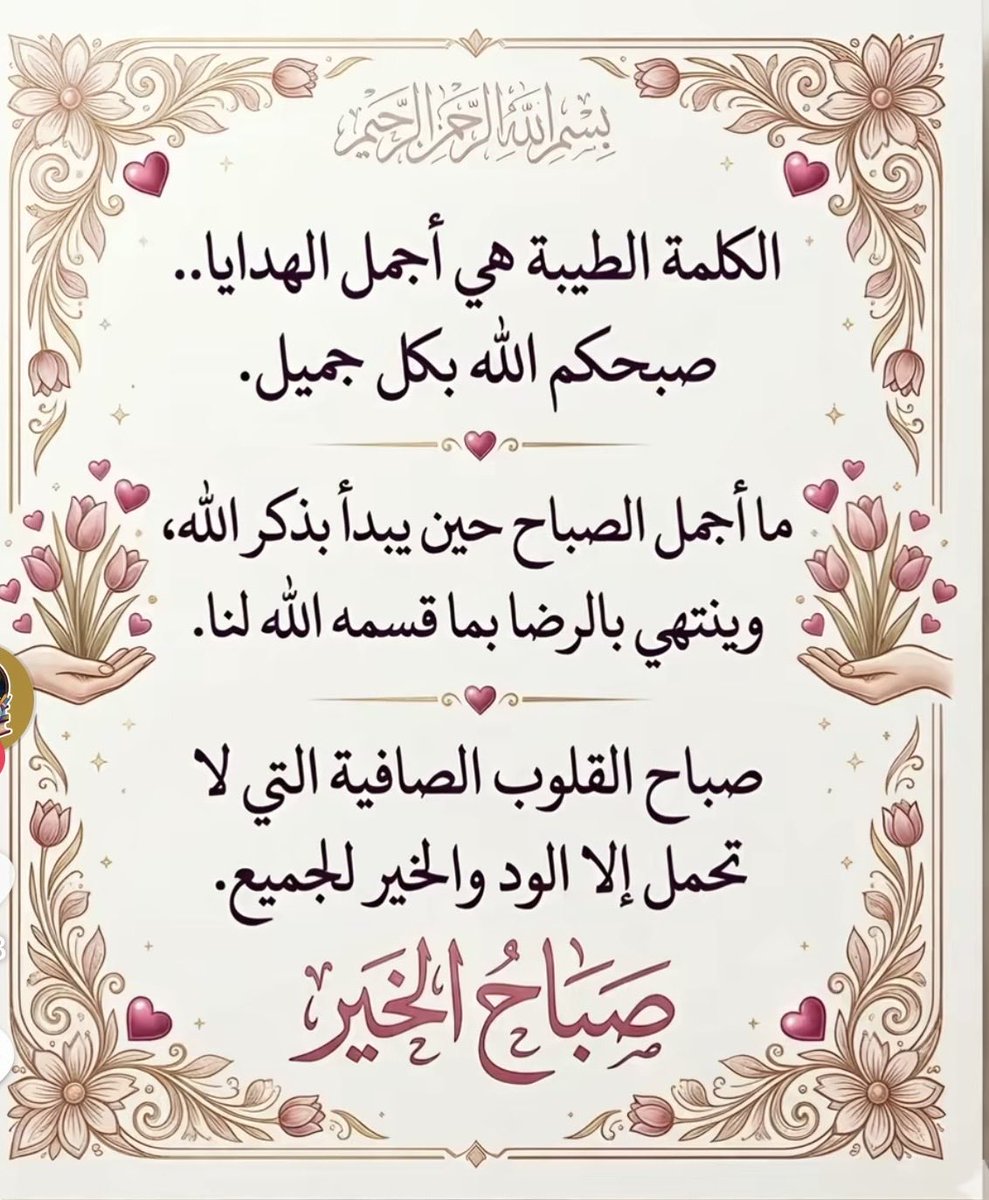 بِسْمِ اللَّهِ الرَّحْمَنِ الرَّحِيمِ
الكلمة الطيبة هي أجمل الهدايا..
صبحكم الله بكل جميل.
ما أجمل الصباح حين يبدأ بذكر الله،
وينتهي بالرضا بما قسمه الله لنا.
صباح القلوب الصافية التي لا
تحمل إلا الود والخير للجميع.
صَبَاحُ الخَير